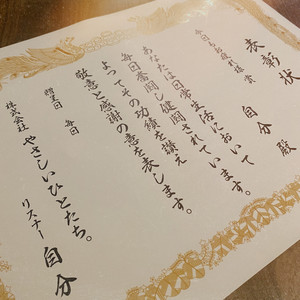 表彰状
今日もお疲れ様賞
自分 殿
あなたは日常生活において
毎日奮闘し健闘されています。
よってその功績を讃え
敬意と感謝の意を表します。
贈呈日 毎日
株式会社 やさしいひとたち。
リスナー 自分